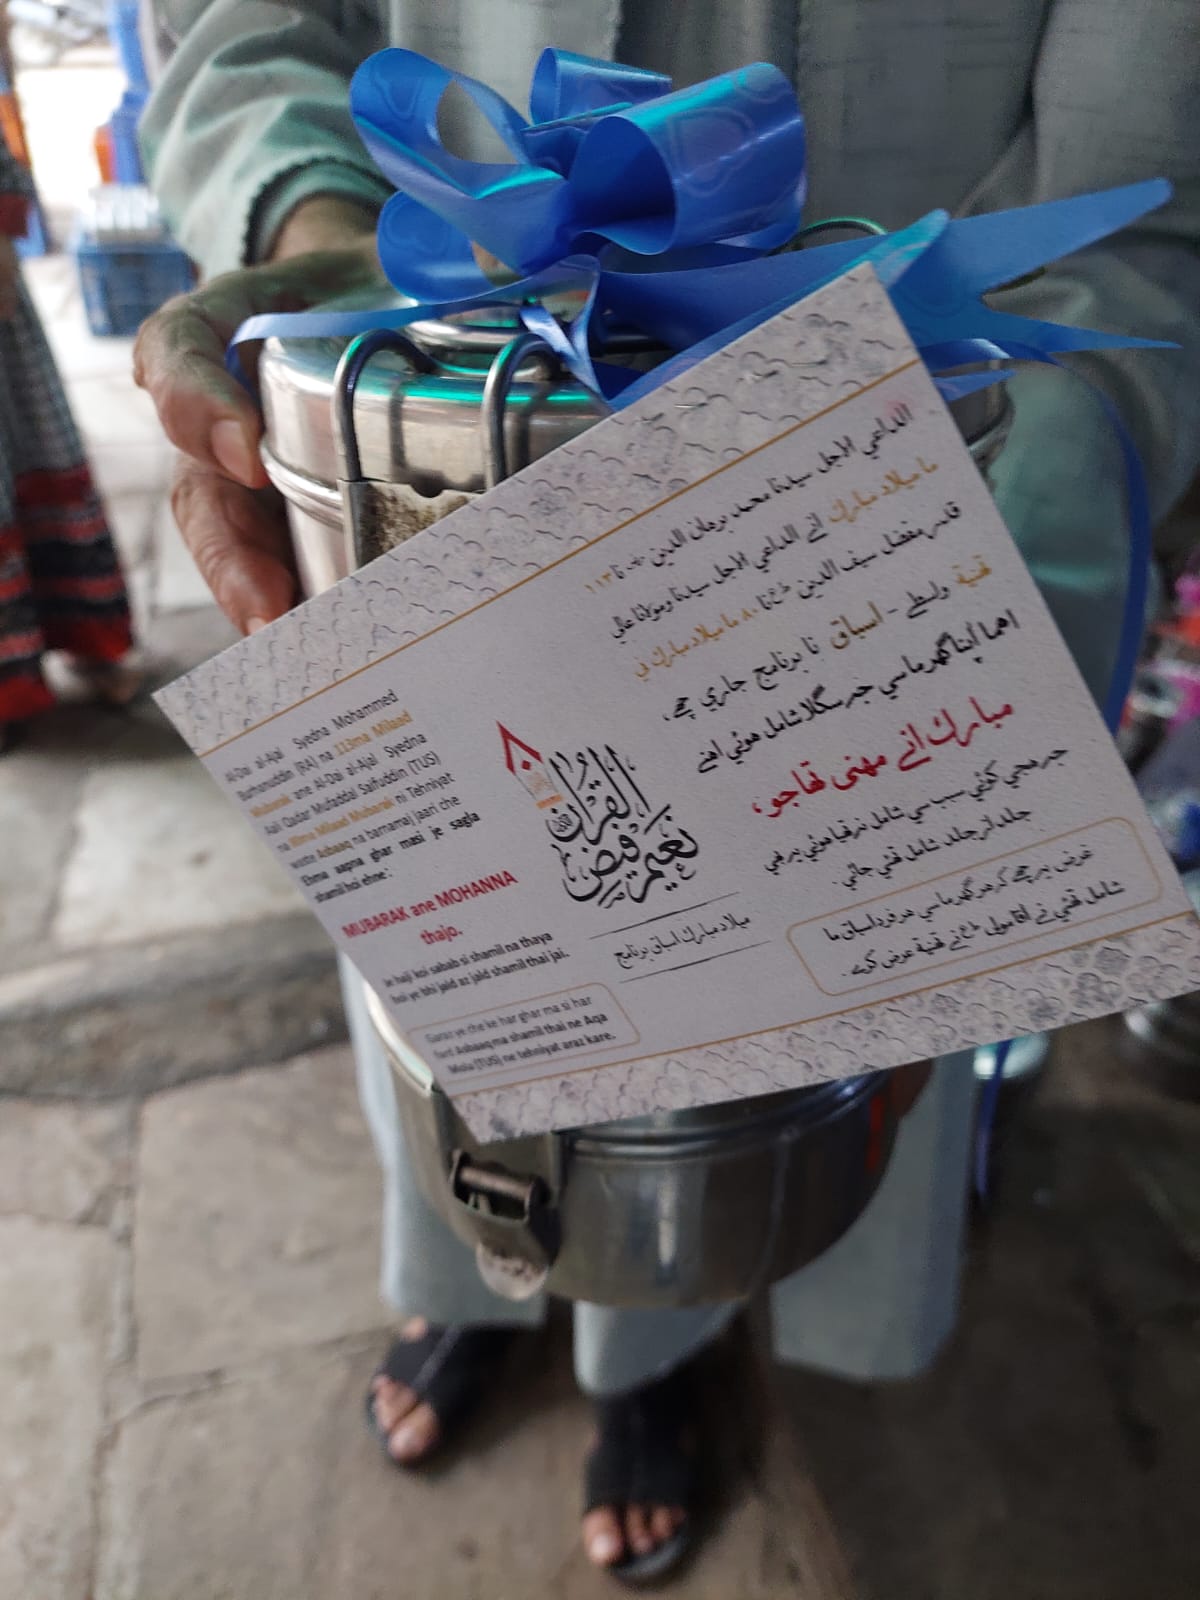 Al-Dai al-Ajal Syedna Mohammed
Burhanuddin (RA) na 113ma Milaad
Mubarak ane Al-Dai al-Ajal Syedna
Aali Qadar Mufaddal Saifuddin (TUS)
na 80ma Milaad Mubarak ni Tehniyat
waste Asbaaq na barnamaj jaari che
Ehma aapna ghar masi je sagla
shamil hoi ehne:
MUBARAK ane MOHANNA
thajo.
Je haji koi sabab si shamil na thaya
hoi ye bhi jald az jald shamil thai jai.
Garaz ye che ke har ghar ma si har
fard Asbaaq ma shamil thai ne Aqa
Mola (TUS) ne tehniyat araz kare.
القرآن
نعيم فيض
ميلاد مبارك اسباق برنامج
الداعي الاجل سيدنا محمد برهان الدين نا ١١٣
ما ميلاد مبارك انے الداعي الاجل سيدنا ومولانا عالي
قدر مفضل سيف الدين نا ٨٠ ما ميلاد مبارك ني
تهنية واسطے - اسباق نا برنامج جاري چھے،
اهما اپنا گھر ماسي جہ سگلا شامل هوئي اهنے
مبارك انے مهنى تھاجو،
جہ هجي كوئي سبب سي شامل نہ تھيا هوئي يہ بھي
جلد از جلد شامل تھئي جائي.
غرض يہ چھے كہ هر گھر ماسي هر فرد اسباق ما
شامل تھئي نے اقا مولى نے تهنية عرض كرے.